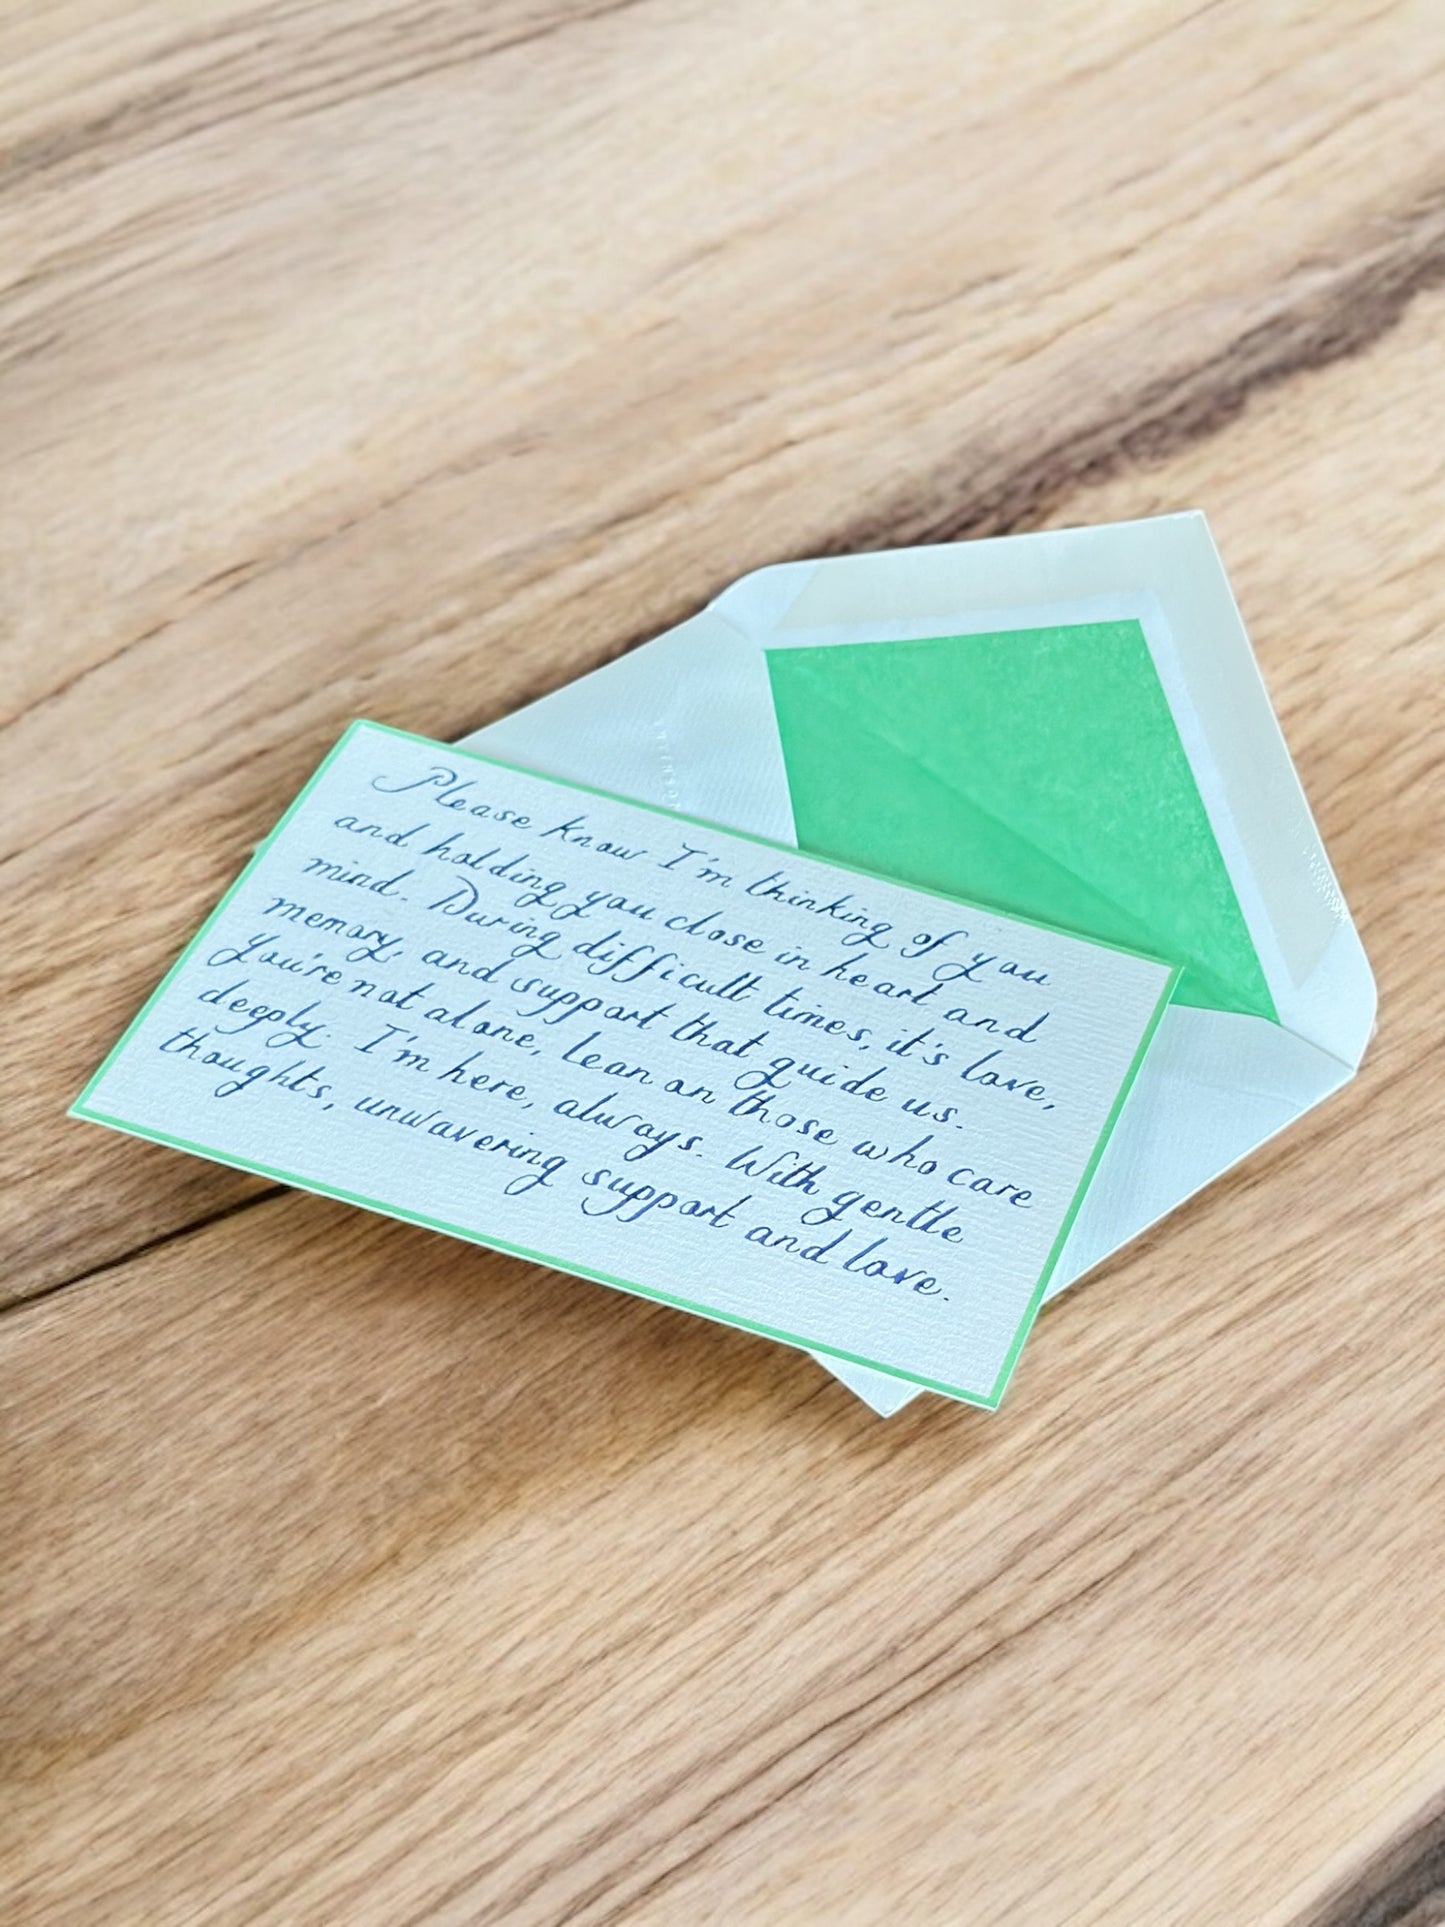 Please know I'm thinking of you
and holding you close in heart and
mind. During difficult times, it's love,
memory, and support that guide us.
You're not alone, lean on those who care
deeply. I'm here, always. With gentle
thoughts, unwavering support and love.